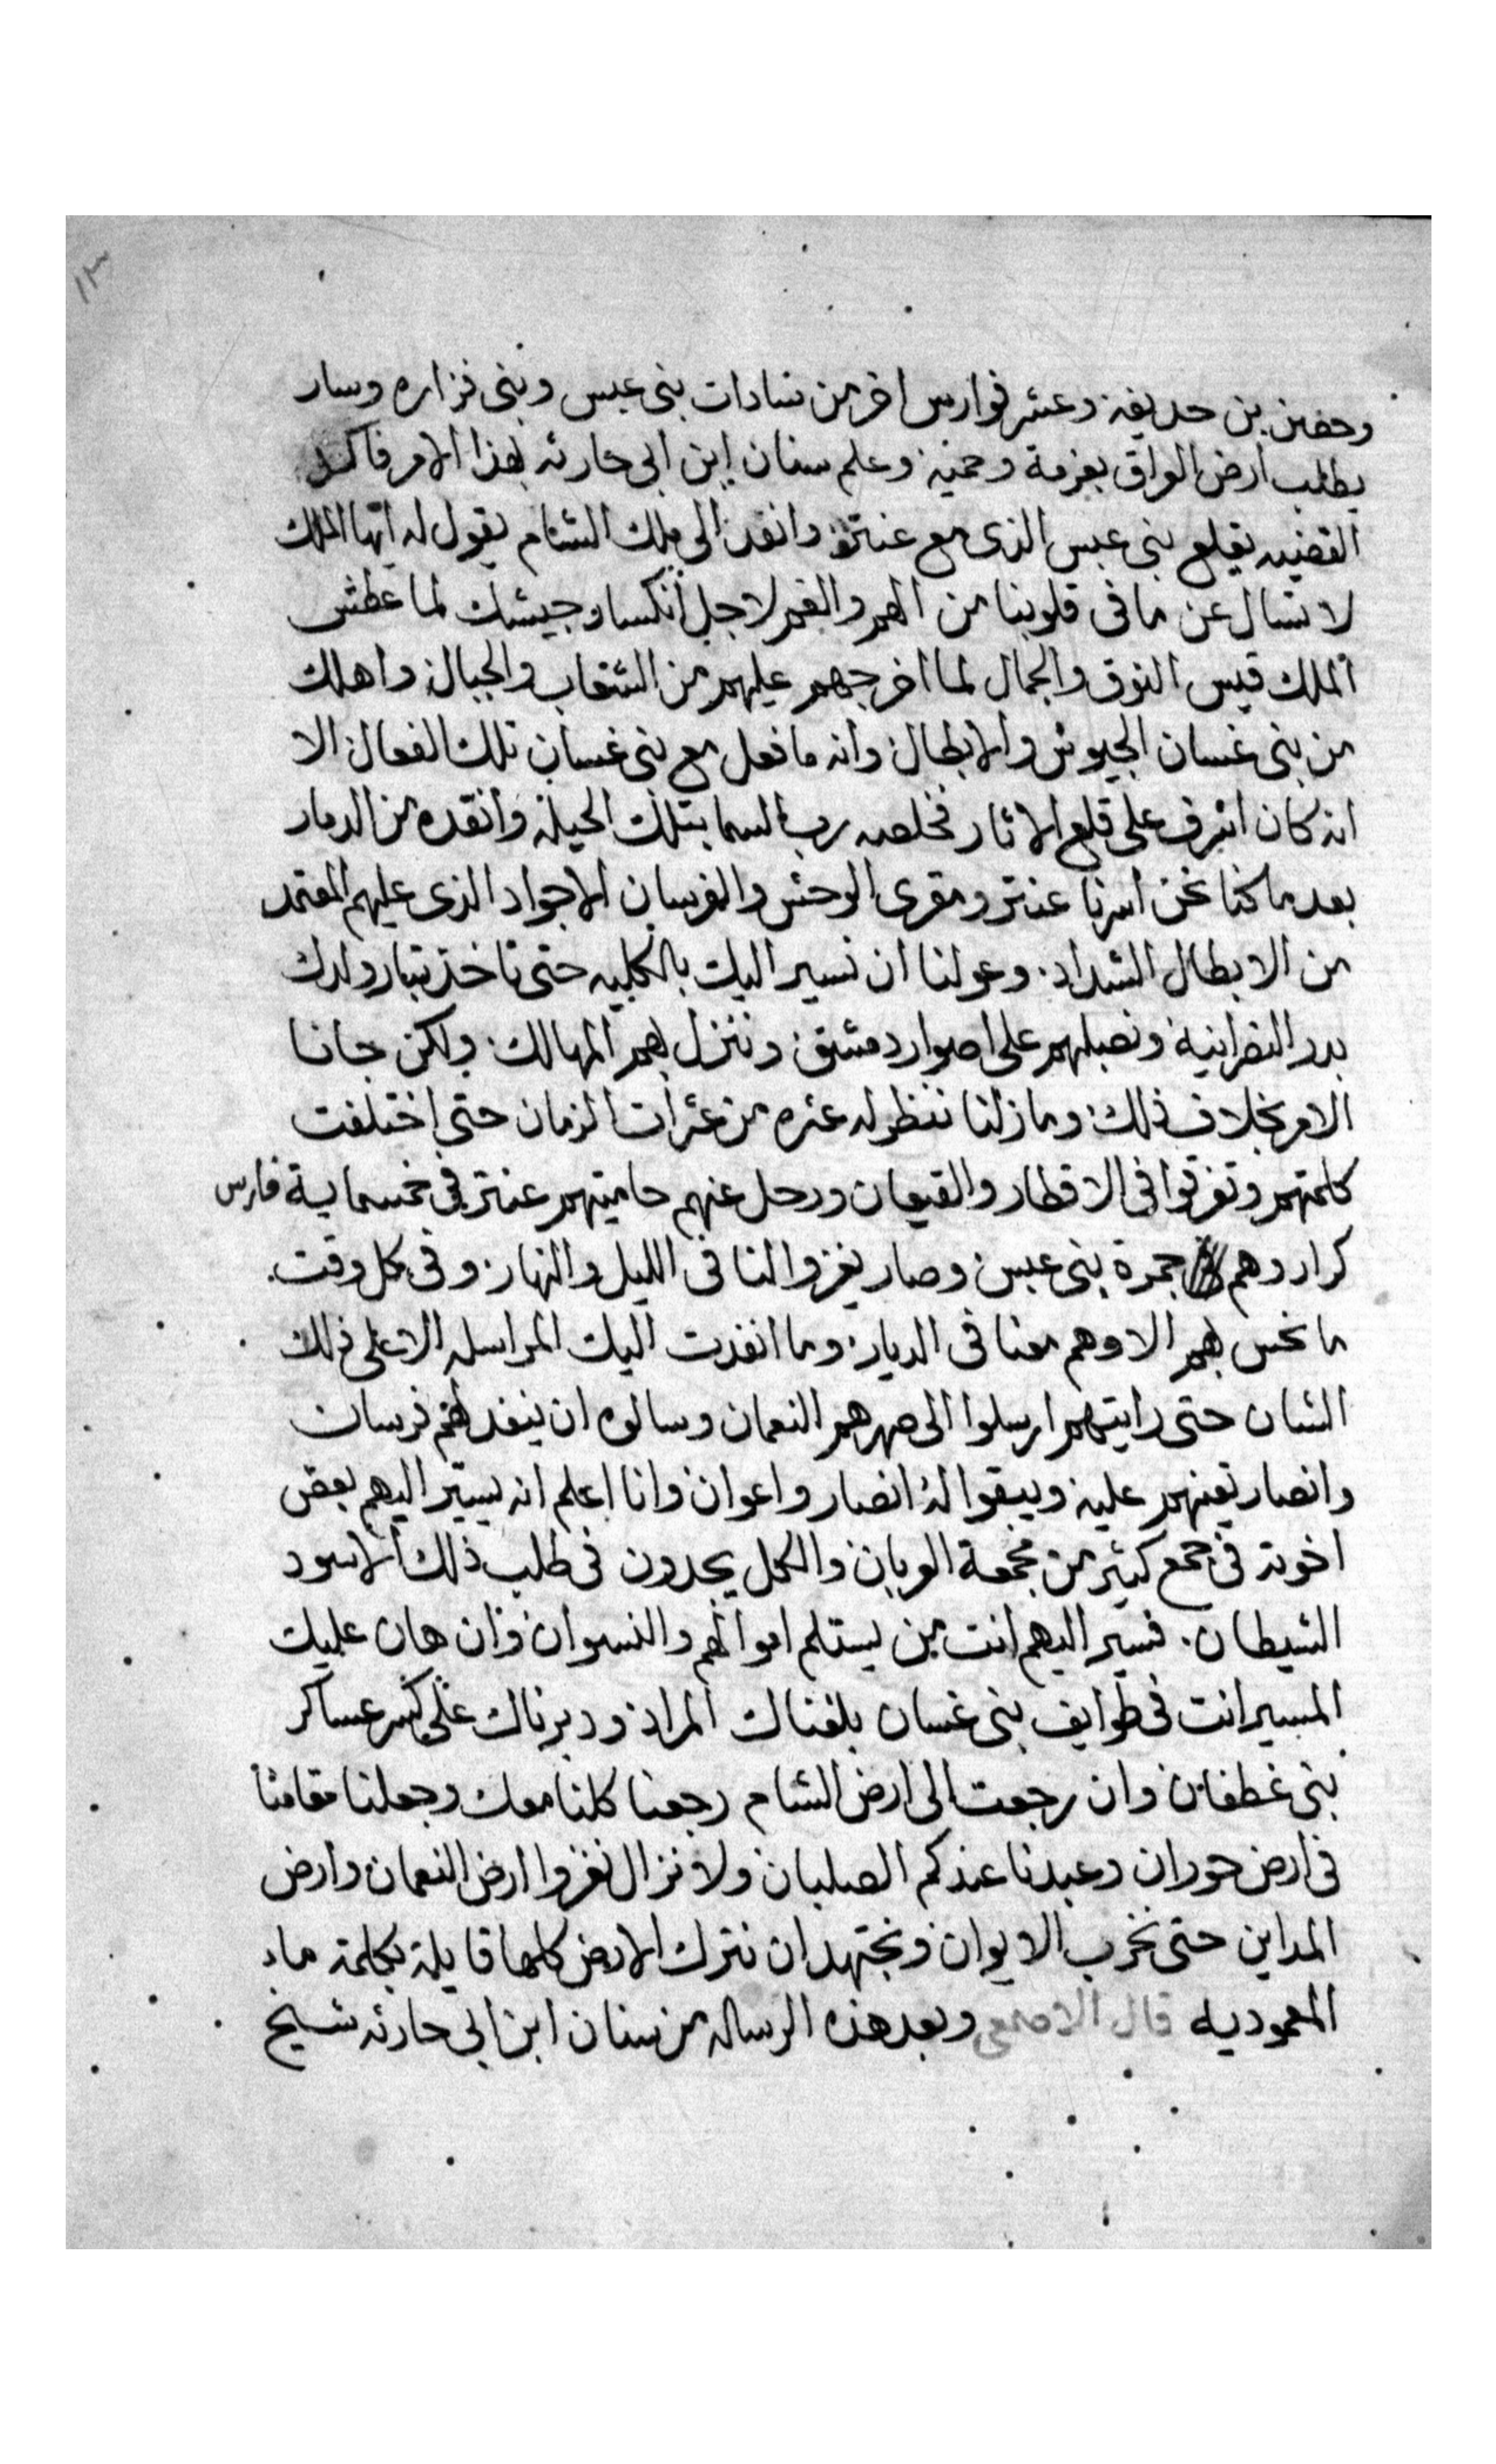 ١٣
وحصن بن حديفه وعشر فوارس اخر من سادات بني عبس وبني فزاره وسار
يطلب ارض العراق بعزمة وحميه وعلم سنان ابن ابي حارثه بهذا الامر فاكد
القضيه بقلع بني عبس الذى مع عنتر وانفد الى ملك الشام يقول له ايها الملك
لا تسال عن ما فى قلوبنا من الهم والغم لاجل انكسار جيشك لما عطش
الملك قيس النوق والجمال لما اخرجهم عليهم من الشعاب والجبال واهلك
من بني غسان الجيوش والابطال وانه ما فعل مع بني غسان تلك الفعال الا
انه كان اشرف على قلع الاثار فخلصه رب السما بتلك الحيله وانقده من الدمار
بعد ما كنا نحن اسرنا عنتر ومقرى الوحش والفرسان الاجواد الذى عليهم المعتمد
من الابطال الشداد وعولنا ان نسير اليك بالكليه حتى تاخذ بتار ولدك
بدر النصرانية ونصلبهم على اصوار دمشق وننزل بهم المهالك ولكن جانا
الامر بخلاف ذلك وما زلنا ننظر له عثره من عثرات الزمان حتى اختلفت
كلمتهم وتفرقوا فى الاقطار والقيعان ورحل عنهم حاميتهم عنتر في خمسماية فارس
كرار وهم جمرة بني عبس وصار يغزوالنا فى الليل والنهار وفى كل وقت
ما نحس بهم الا وهم معنا فى الديار وما انفدت اليك المراسله الا على ذلك
الشان حتى رايتهم ارسلوا الى صهرهم النعمان وسالوه ان ينفد لهم فرسان
وانصار تعينهم عليه ويبقوا له انصار واعوان وانا اعلم انه يسير اليهم بعض
اخوته فى جمع كثير من مجمعة العربان والكل يجدون فى طلب ذلك الاسود
الشيطان فسير اليهم انت من يستلم اموالهم والنسوان وان هان عليك
المسير انت فى طوايف بني غسان بلغناك المراد ودبرناك على كسر عساكر
بني غطفان وان رجعت الى ارض الشام رجعنا كلنا معك وجعلنا مقامنا
فى ارض حوران وعبدنا عندكم الصلبان ولا نزال نغزوا ارض النعمان وارض
المداين حتى نخرب الايوان ونجتهد ان نترك الارض كلها قايلة بكلمة ماء
المعموديه قال الاصمعي وبعد هذه الرساله من سنان ابن ابي حارثه شيخ